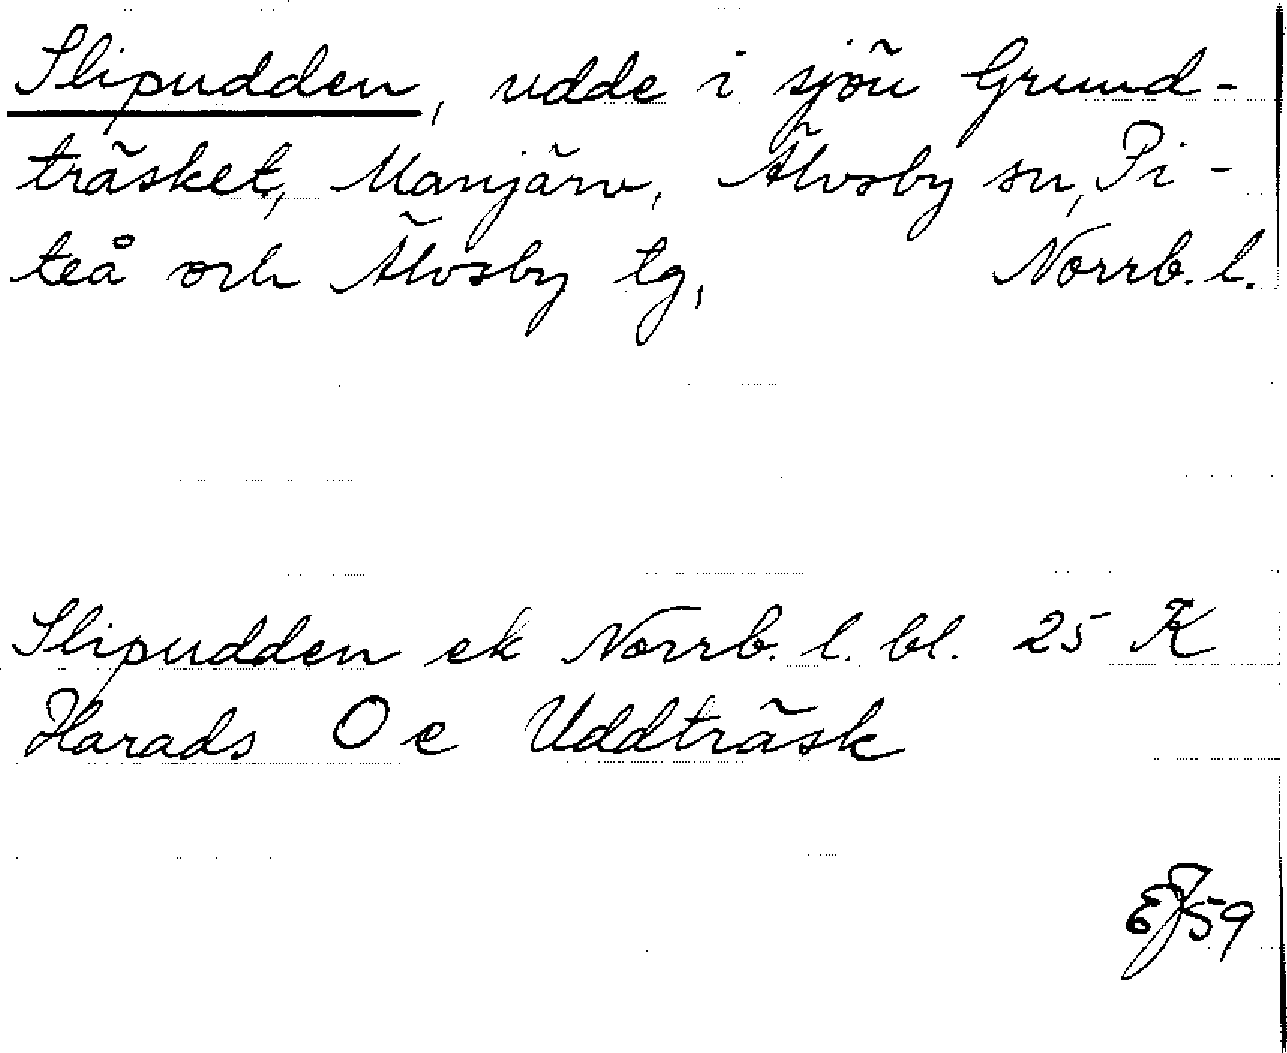 Slipudden, udde i sjön Grund-
träsket, Manjärv, Älvsby sn, Pi-
teå och Älvsby tg, Norrb. l.
Slipudden ek Norrb. l. bl. 25 K
Harads O e Uddträsk
EJ 59